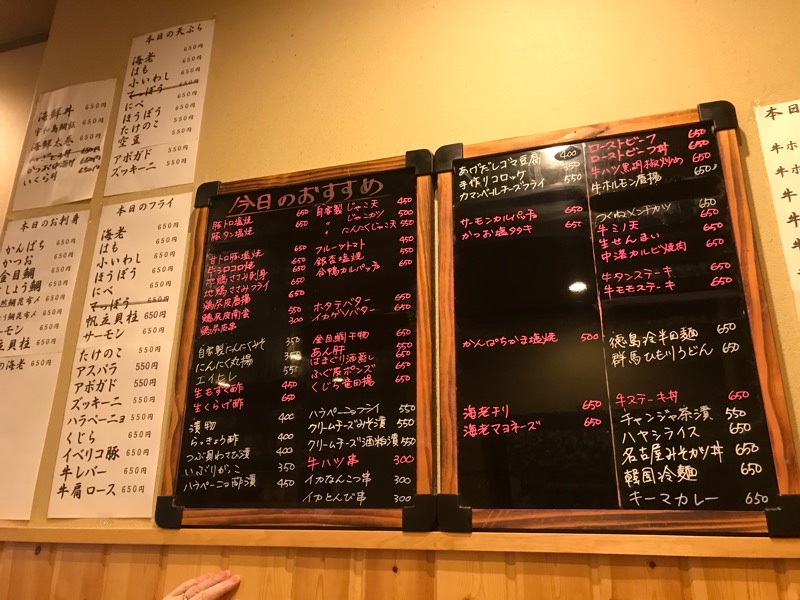 海鮮丼 650円
海鮮太巻 650円
いくら丼
本日の天ぷら
海老 650円
はも 650円
小いわし 650円
てっぽう 650円
にべ 650円
ほうぼう 650円
たけのこ 650円
空豆 650円
アボガド 550円
ズッキーニ 550円
本日のお刺身
かんぱち 650円
かつお 650円
金目鯛 650円
サーモン 650円
帆立貝柱 650円
の海老 650円
本日のフライ
海老 650円
はも 650円
小いわし 650円
ほうぼう 650円
にべ 650円
てっぽう 650円
帆立貝柱 650円
サーモン 650円
たけのこ 550円
アスパラ 550円
アボガド 550円
ズッキーニ 550円
ハラペーニョ 550円
くじら 650円
イベリコ豚 650円
牛レバー 650円
牛肩ロース 650円
今日のおすすめ
豚トロ塩焼 650
豚タン塩焼 650
牛トロ豚塩焼 650
牛シロコロ焼 650
地鶏ささみ刺身 650
地鶏ささみフライ 650
鶏尻皮唐揚 650
鶏尻皮南蛮 650
鶏尻皮串 300
自家製にんにくみそ 350
にんにく丸揚 350
エイヒレ 550
生もずく酢 450
生くらげ酢 650
漬物 400
らっきょう酢 400
つぶ貝わさび漬 400
いぶりがっこ 350
ハラペーニョ酢漬 450
自家製 じゃこ天 450
〃 じゃこカツ 500
〃 にんにくじゃこ天 550
フルーツトマト 450
銀杏塩焼 550
合鴨カルパッチョ 650
ホタテバター 650
イカゲソバター 650
金目鯛干物 650
あん肝 650
はまぐり酒蒸し 650
ふぐ皮ポンズ 650
くじら竜田揚 650
ハラペーニョフライ 550
クリームチーズみそ漬 550
クリームチーズ酒粕漬 550
牛ハツ串 300
イカなんこつ串 300
イカとんび串 300
あげだしゴマ豆腐 400
手作りコロッケ 350
カマンベールチーズフライ 550
サーモンカルパッチョ 650
かつお塩タタキ 650
かんぱちかま塩焼 500
海老チリ 650
海老マヨネーズ 650
ローストビーフ 650
ローストビーフ丼 650
牛ハツ黒胡椒炒め 650
牛ホルモン唐揚 650
つくねメンチカツ 650
牛ミノ天 650
生せんまい 650
中落カルビ焼肉 650
牛タンステーキ 650
牛モモステーキ 650
徳島冷半田麺 650
群馬ひもかわうどん 650
牛ステーキ丼 650
チャンジャ茶漬 550
ハヤシライス 650
名古屋みそカツ丼 650
韓国冷麺 650
キーマカレー 650
本日の